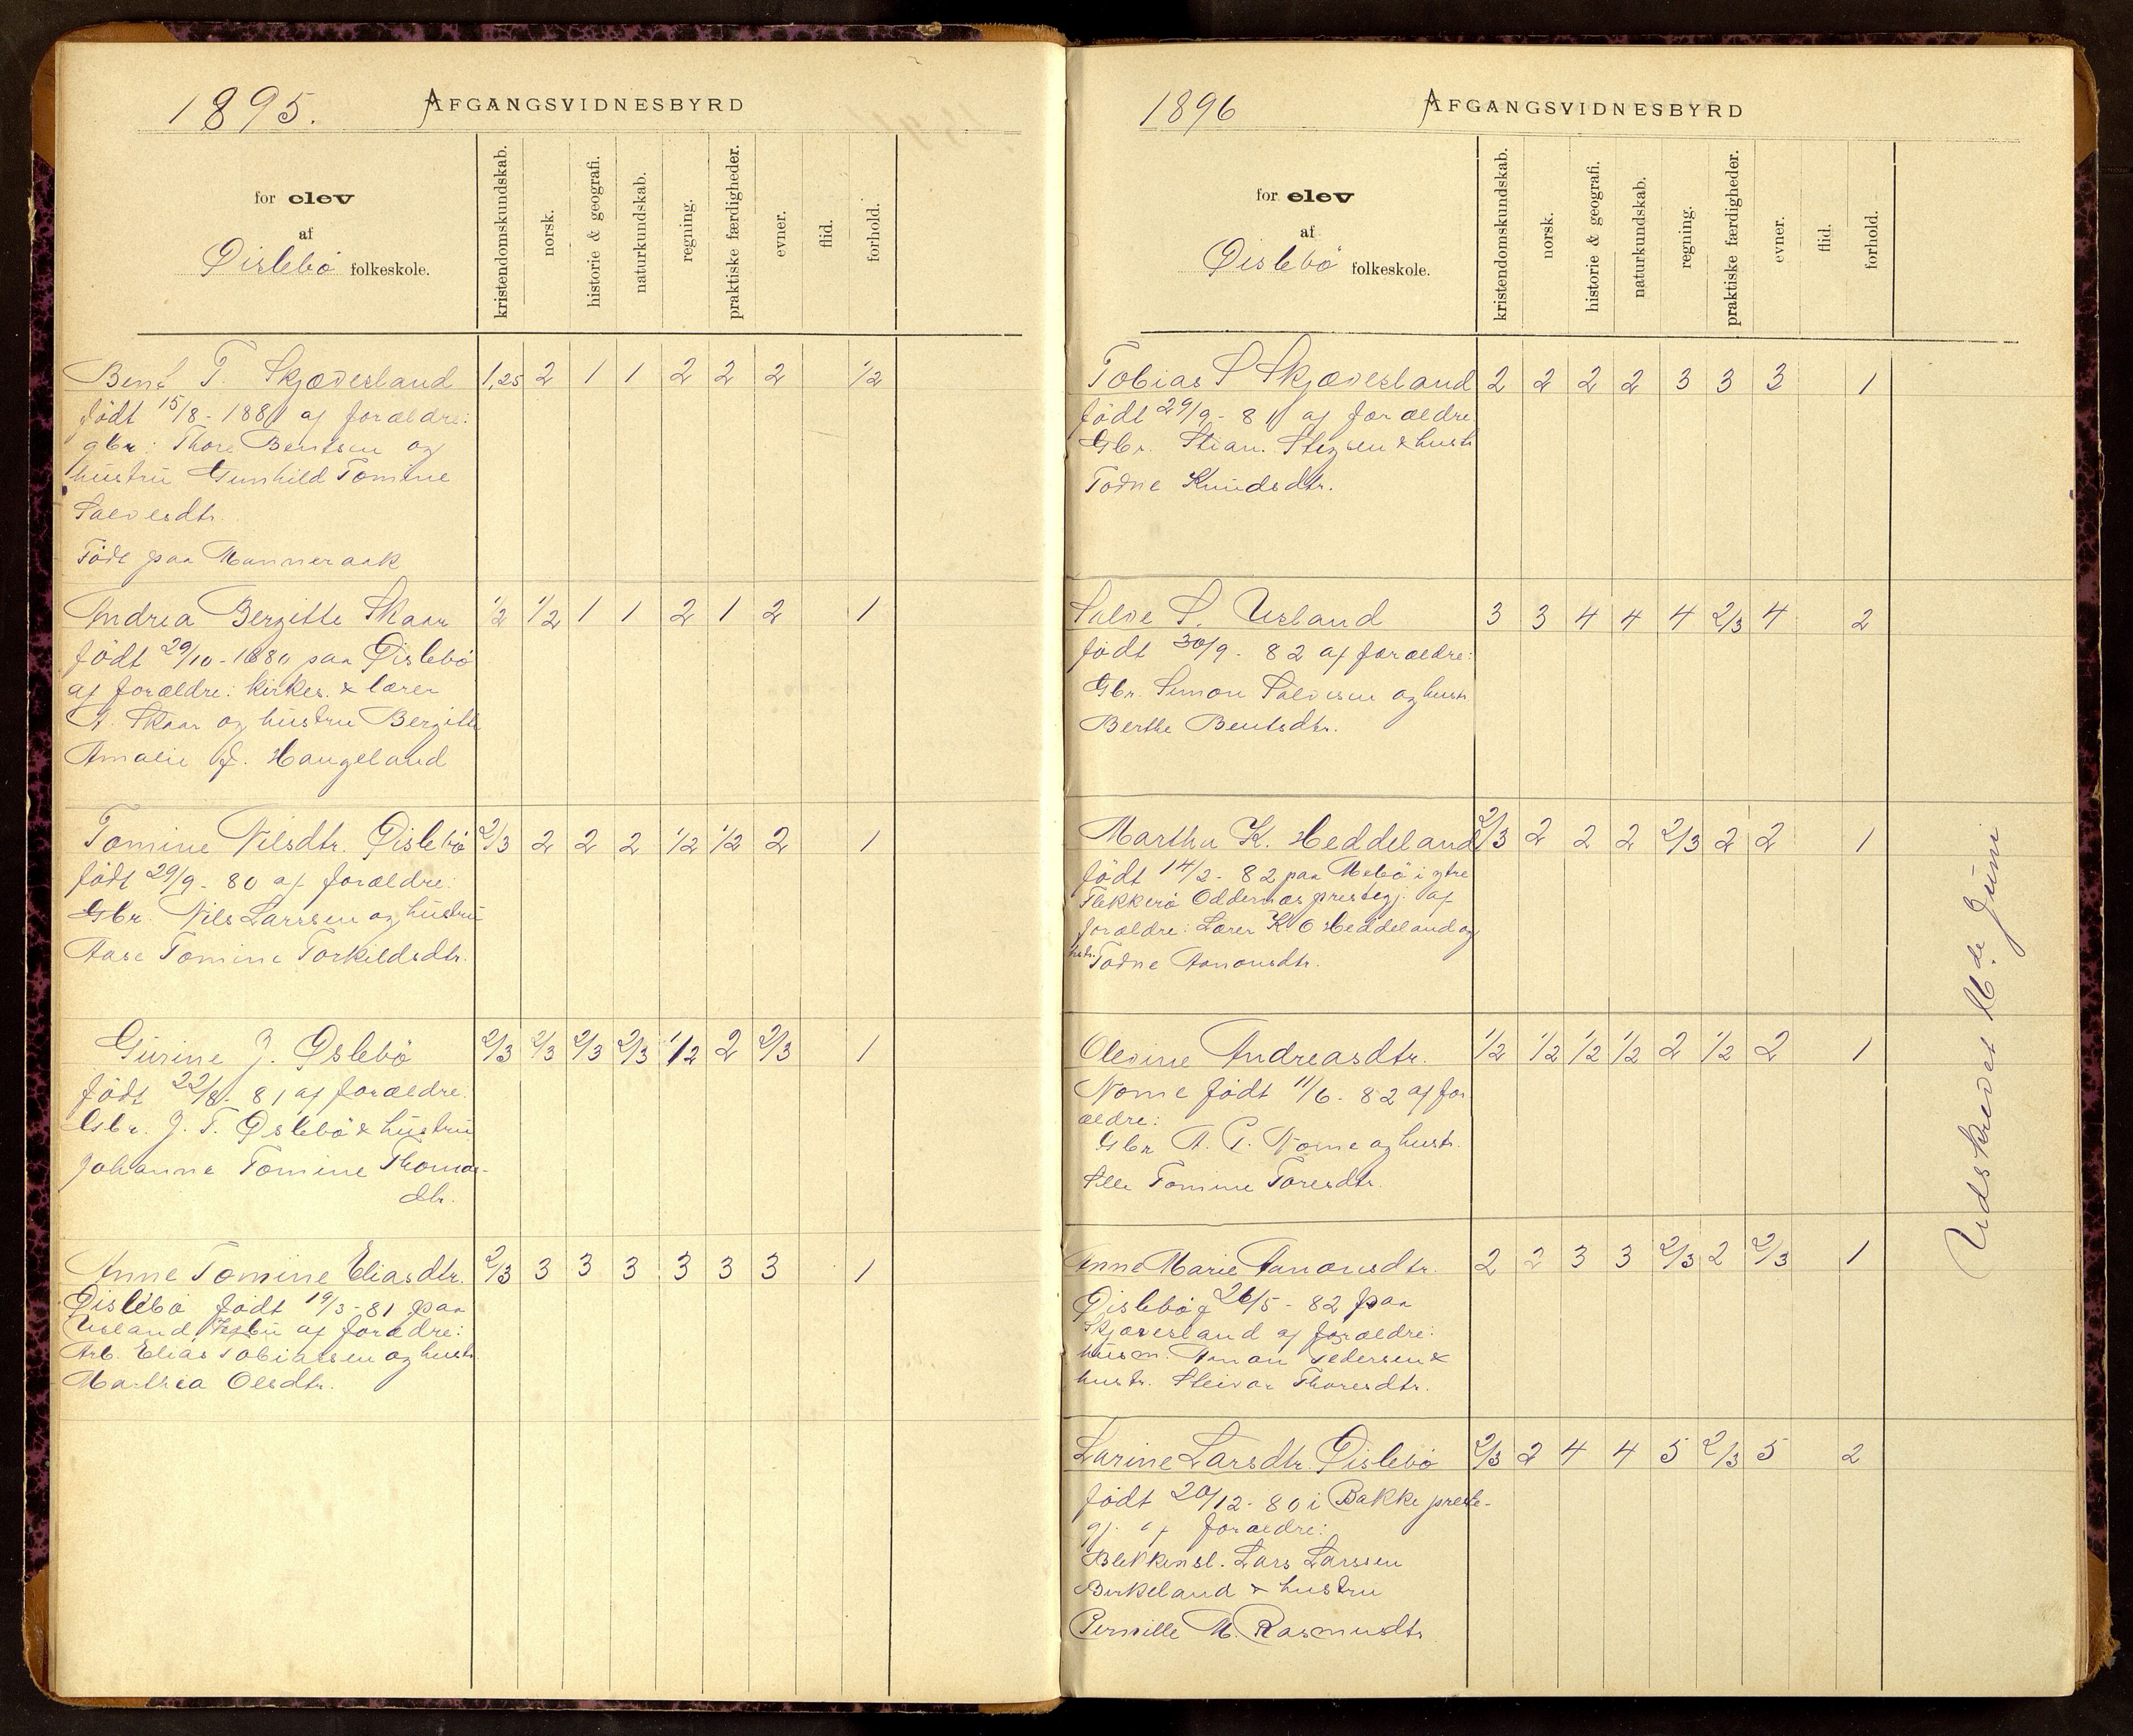 1895.
AFGANGSVIDNESBYRD
for elev
af
Øislebö folkeskole.
kristendomskundskab.
norsk.
historie & geografi.
naturkundskab.
regning.
praktiske færdigheder.
evner.
flid.
forhold.
Bent T. Skjævesland 1,25 2 1 1 2 2 2 1/2
födt 15/8 - 1881 af forældre:
gbr: Thore Bentsen og
hustru Gunhild Tomine
Salvesdtr.
Född paa Manneraak
Andrea Bergitte Skaar 1/2 1/2 1 1 2 1 2 1
födt 29/10 - 1880 paa Øislebö
af forældre: kirkes. & lærer
A. Skaar og hustru Bergitte
Amalie f. Haugeland
Tomine Nilsdtr. Øislebö 2/3 2 2 2 1/2 1/2 2 1
födt 29/9 - 80 af forældre:
Gbr. Nils Larssen og hustru
Aase Tomine Torkildsdtr.
Gurine J. Øslebö 2/3 2/3 2/3 2/3 1/2 2 2/3 1
födt 22/8 - 81 af forældre.
Gbr. J. T. Øslebö & hustru
Johanne Tomine Thomas-
dtr.
Anne Tomine Eliasdtr. 2/3 3 3 3 3 3 3 1
Øislebö födt 19/3 - 81 paa
Usland, af forældre:
Arb. Elias Tobiassen og hustr.
Mathea Olsdtr.
1896
AFGANGSVIDNESBYRD
for elev
af
Øislebö folkeskole.
kristendomskundskab.
norsk.
historie & geografi.
naturkundskab.
regning.
praktiske færdigheder.
evner.
flid.
forhold.
Tobias S Skjævesland 2 2 2 2 3 3 3 1
födt 29/9 - 81 af forældre
Gbr. Stian. & hustr
Todne Knudsdtr.
Salve S. Usland 3 3 4 4 4 2/3 4 2
födt 30/9 - 82 af forældre:
Gbr. Simon Salvesen og hustr
Berthe Bentsdtr.
Martha K. Heddeland 2/3 2 2 2 2/3 2 2 1
födt 14/2 - 82 paa Mebö i ytre
Flekkerö Oddernæs prestegj. af
forældre: Lærer K O Heddeland og
hstr. Todne Aanonsdtr.
Olevine Andreasdtr. 1/2 1/2 1/2 1/2 2 1/2 2 1
Nome födt 11/6 - 82 af for
ældre:
Gbr A. G. Nome og hustr.
Sille Tomine Toresdtr.
Anne Marie Aanonsdtr. 2 2 3 3 2/3 2 2/3 1
Øislebö f 26/5 - 82 paa
Skjævesland af forældre:
husm. Aanon Pedersen &
hustr. Steivor Thoresdtr.
Larine Larsdtr Øislebö 2/3 2 4 4 5 2/3 5 2
födt 20/12 - 80 i Bakke preste-
gj. af forældre:
Blekkensl. Lars Larssen
Birkeland & hustru
Pernille M. Rasmusdtr
Udskrevet 16de Juni